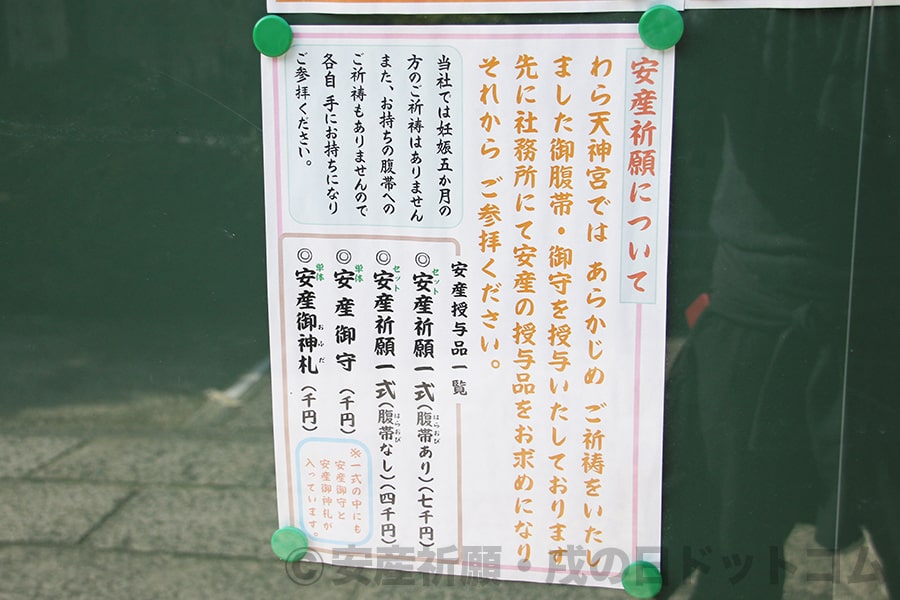 安産祈願について
わら天神宮では あらかじめ ご祈祷をいたし
ました御腹帯・御守を授与いたしております
先に社務所にて安産の授与品をお求めになり
それから ご参拝ください。
当社では妊娠五か月の
方のご祈祷はありません
また、お持ちの腹帯への
ご祈祷もありませんので
各自 手にお持ちになり
ご参拝ください。
安産授与品一覧
◎セット安産祈願一式(腹帯あり)(七千円)
はらおび
◎セット安産祈願一式(腹帯なし)(四千円)
はらおび
◎単体安産御守(千円)
◎単体安産御神札(千円)
おふだ
※一式の中にも
安産御守と
安産御神札が
入っています。
©安産祈願・戌の日ドットコム